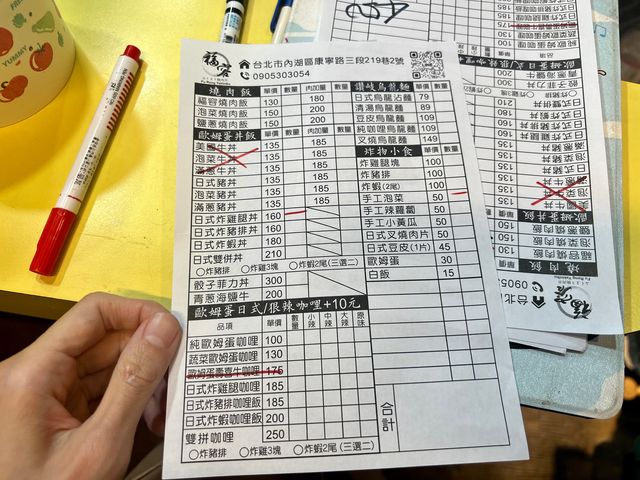 福容
台北市內湖區康寧路三段219巷2號
0905303054
燒肉飯 單價 數量 肉加量 數量
福容燒肉飯 130 180
泡菜燒肉飯 150 200
鹽蔥燒肉飯 150 200
歐姆蛋丼飯 單價 數量 肉加量 數量
美國牛丼 135 185
泡菜牛丼 135 185
滿蔥牛丼 135 185
日式豬丼 135 185
泡菜豬丼 135 185
滿蔥豬丼 135 185
日式炸雞腿丼 160
日式炸豬排丼 160
日式炸蝦丼 180
日式雙併丼 210
炸豬排 炸雞3塊 炸蝦2尾(三選二)
骰子菲力丼 300
青蔥海鹽牛 200
歐姆蛋日式/很辣咖哩+10元
品項 單價 數量 小辣 中辣 大辣 原味
純歐姆蛋咖哩 100
蔬菜歐姆蛋咖哩 130
歐姆蛋壽喜牛咖哩 175
日式炸雞腿咖哩 185
日式炸豬排咖哩飯 185
日式炸蝦咖哩飯 200
雙拼咖哩 250
炸豬排 炸雞3塊 炸蝦2尾(三選二)
讚岐烏龍麵 單價 數量
日式烏龍沾麵 79
清湯烏龍麵 89
豆皮烏龍麵 109
純咖哩烏龍麵 109
叉燒烏龍麵 149
炸物小食 單價 數量
炸雞腿塊 100
炸豬排 100
炸蝦(2尾) 100
手工泡菜 50
手工辣蘿蔔 50
手工小黃瓜 50
日式叉燒肉片 50
日式豆皮(1片) 45
歐姆蛋 30
白飯 15
合計
YUMMY